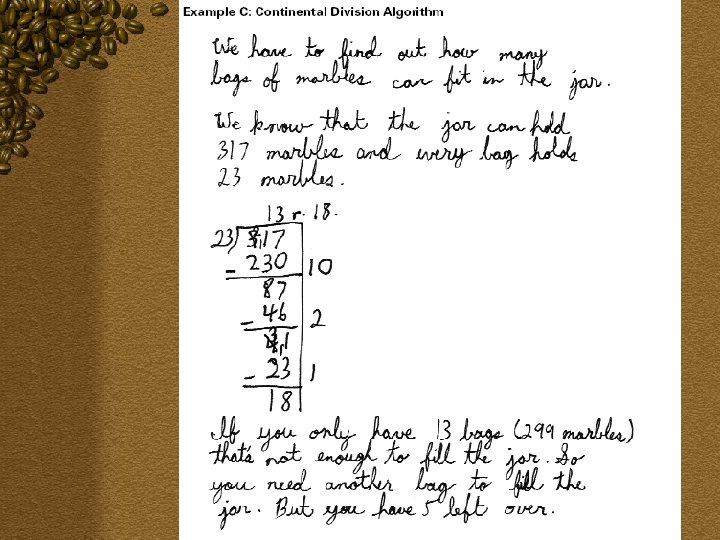 Example C: Continental Division Algorithm
We have to find out how many
bags of marbles can fit in the jar.
We know that the jar can hold
317 marbles and every bag holds
23 marbles.
13 r. 18.
23) 317
- 230 10
87
- 46 2
41
- 23 1
18
If you only have 13 bags (299 marbles)
that's not enough to fill the jar. So
you need another bag to fill the
jar. But you have 5 left over.